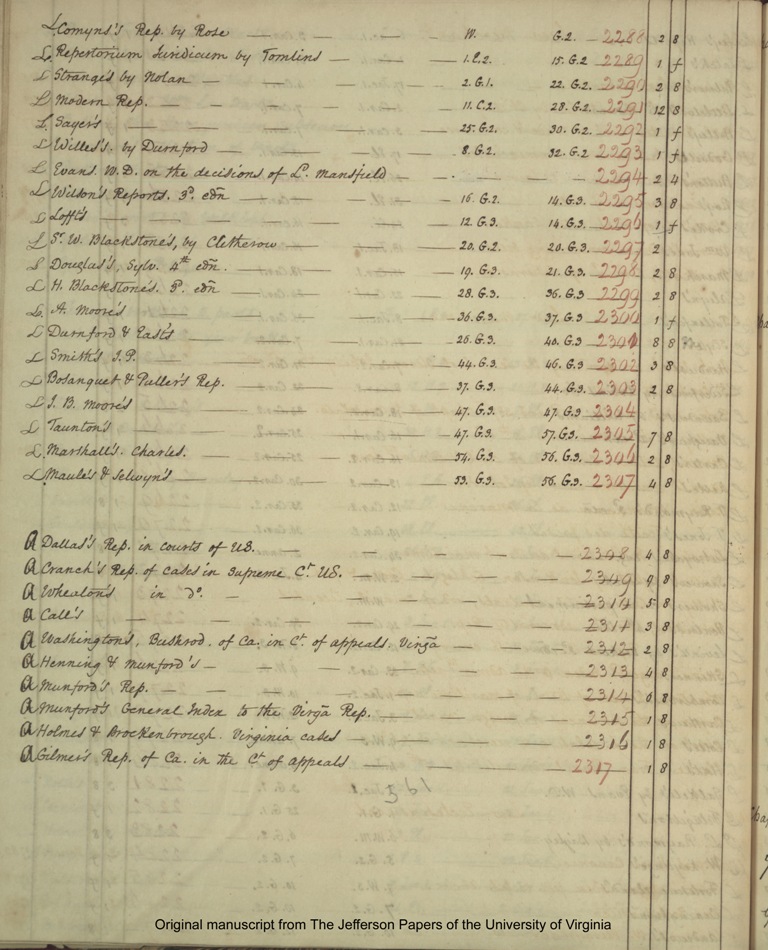 L Comyns's Rep. by Rose — W. G.2. — 2288 2 8
L Repertorium Juridicum by Tomlins — 1.C.2. 15.G.2 2289 1 f
L Strange's by Nolan — 2.G.1. 22.G.2. 2290 2 8
L Modern Rep. — 11.C.2. 28.G.2. 2291 12 8
L Sayer's — 25.G.2. 30.G.2. 2292 1 f
L Willes's. by Durnford — 8.G.2. 32.G.2 2293 1 f
L Evans. W.D. on the decisions of Ld. Mansfield — 2294 2 4
L Wilson's Reports. 3d. edn — 16.G.2. 14.G.3. 2295 3 8
L Lofft's — 12.G.3. 14.G.3. 2296 1 f
L Sr. W. Blackstone's, by Clitherow — 20.G.2. 20.G.3. 2297 2
L Douglas's, Sylv. 4th edn. — 19.G.3. 21.G.3. 2298 2 8
L H. Blackstone's. 3d. edn — 28.G.3. 36.G.3. 2299 2 8
L A. Moore's — 36.G.3. 37.G.3. 2300 1 f
L Durnford & East's — 26.G.3. 40.G.3. 2301 8 8
L Smith's J.P. — 44.G.3. 46.G.3. 2302 3 8
L Bosanquet & Puller's Rep. — 37.G.3. 44.G.3. 2303 2 8
L J. B. Moore's — 47.G.3. 47.G.3. 2304
L Taunton's — 47.G.3. 57.G.3. 2305 7 8
L Marshall's. Charles. — 54.G.3. 56.G.3. 2306 2 8
L Maule's & Selwyn's — 53.G.3. 56.G.3. 2307 4 8
a Dallas's Rep. in courts of US. — 2308 4 8
a Cranch's Rep. of cases in Supreme Ct. US. — 2309 9 8
a Wheaton's in do. — 2310 5 8
a Call's — 2311 3 8
a Washington's, Bushrod. of Ca. in Ct. of appeals. Virga — 2312 2 8
a Henning & Munford's — 2313 4 8
a Munford's Rep. — 2314 6 8
a Munford's General Index to the Virga Rep. — 2315 1 8
a Holmes & Brockenbrough. Virginia cases — 2316 1 8
a Gilmer's Rep. of Ca. in the Ct of appeals — 2317 1 8
Original manuscript from The Jefferson Papers of the University of Virginia